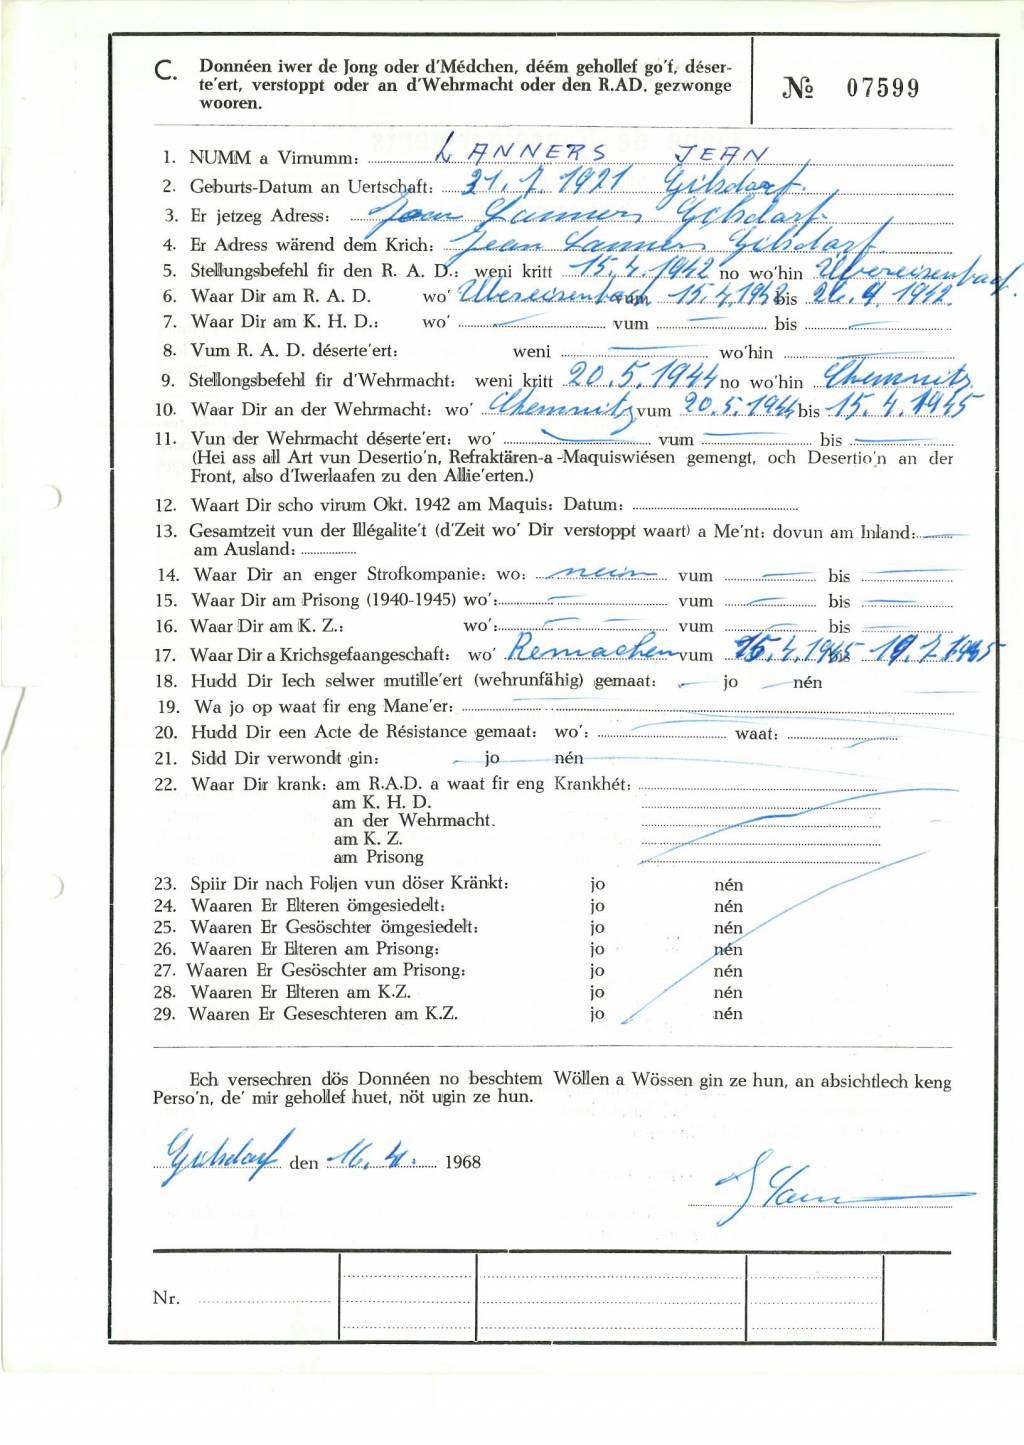 C. Donnéen iwer de Jong oder d'Médchen, déém gehollef go'f, déser-
te'ert, verstoppt oder an d'Wehrmacht oder den R.AD. gezwonge
wooren.
№ 07599
1. NUMM a Virnumm: LANNERS JEAN
2. Geburts-Datum an Uertschaft: 21.7.1921 Gilsdorf.
3. Er jetzeg Adress: Jean Lanners Gilsdorf.
4. Er Adress wärend dem Krich: Jean Lanners Gilsdorf.
5. Stellungsbefehl fir den R. A. D.: weni kritt 15.4.1942 no wo'hin Übereisenbach
6. Waar Dir am R. A. D. wo' Übereisenbach vum 15.4.1942 bis 26.9.1942.
7. Waar Dir am K. H. D.: wo' — vum — bis —
8. Vum R. A. D. déserte'ert: weni — wo'hin —
9. Stellongsbefehl fir d'Wehrmacht: weni kritt 20.5.1944 no wo'hin Chemnitz
10. Waar Dir an der Wehrmacht: wo' Chemnitz vum 20.5.1944 bis 15.4.1945
11. Vun der Wehrmacht déserte'ert: wo' — vum — bis —
(Hei ass all Art vun Desertio'n, Refraktären-a -Maquiswiésen gemengt, och Desertio'n an der
Front, also d'Iwerlaafen zu den Allie'erten.)
12. Waart Dir scho virum Okt. 1942 am Maquis: Datum:
13. Gesamtzeit vun der Illégalite't (d'Zeit wo' Dir verstoppt waart) a Me'nt: dovun am Inland: —
am Ausland:
14. Waar Dir an enger Strofkompanie: wo: nein vum — bis —
15. Waar Dir am Prisong (1940-1945) wo': — vum — bis —
16. Waar Dir am K. Z.: wo': — — vum — bis —
17. Waar Dir a Krichsgefaangeschaft: wo' Remachen vum 15.4.1945 bis 19.7.1945
18. Hudd Dir Iech selwer mutille'ert (wehrunfähig) gemaat: — jo — nén
19. Wa jo op waat fir eng Mane'er: —
20. Hudd Dir een Acte de Résistance gemaat: wo': — waat: —
21. Sidd Dir verwondt gin: — jo — nén
22. Waar Dir krank: am R.A.D. a waat fir eng Krankhét:
am K. H. D.
an der Wehrmacht.
am K. Z.
am Prisong
23. Spiir Dir nach Foljen vun döser Kränkt: jo nén
24. Waaren Er Elteren ömgesiedelt: jo nén
25. Waaren Er Gesöschter ömgesiedelt: jo nén
26. Waaren Er Elteren am Prisong: jo nén
27. Waaren Er Gesöschter am Prisong: jo nén
28. Waaren Er Elteren am K.Z. jo nén
29. Waaren Er Geseschteren am K.Z. jo nén
Ech versechren dös Donnéen no beschtem Wöllen a Wössen gin ze hun, an absichtlech keng
Perso'n, de' mir gehollef huet, nöt ugin ze hun.
Gilsdorf den 16. 1968
Nr.